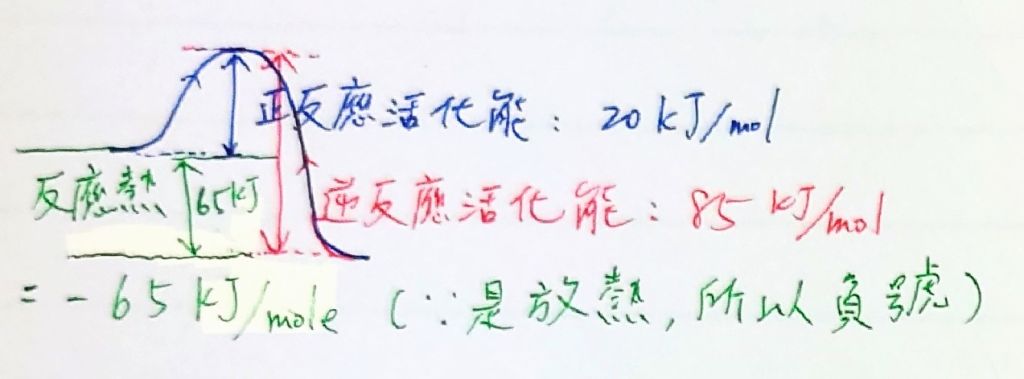 正反應活化能：20 kJ/mol
反應熱 65kJ 逆反應活化能：85 kJ/mol
= -65 kJ/mole (∵是放熱,所以負號)